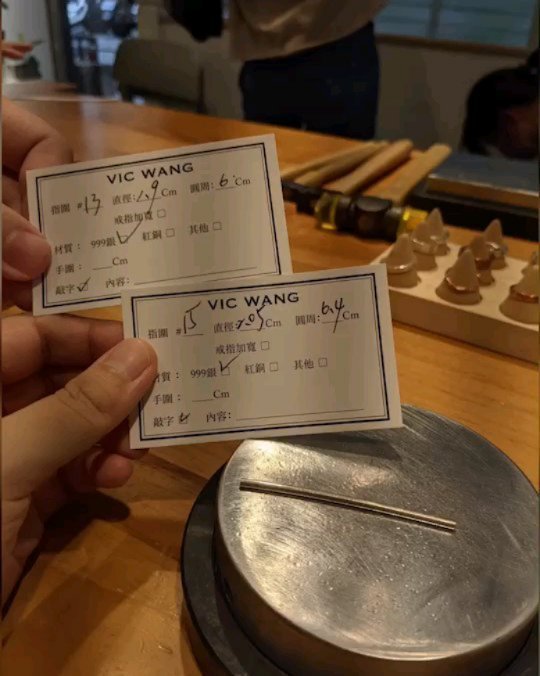 VIC WANG
指圍 #13 直徑:1.9Cm 圓周:6.Cm
戒指加寬 □
材質： 999銀 ☑ 紅銅 □ 其他 □
手圍： ____Cm
敲字 ☑ 內容：
VIC WANG
指圍 #15 直徑:2.05Cm 圓周:6.4Cm
戒指加寬 □
材質： 999銀 ☑ 紅銅 □ 其他 □
手圍： ____Cm
敲字 ☑ 內容：